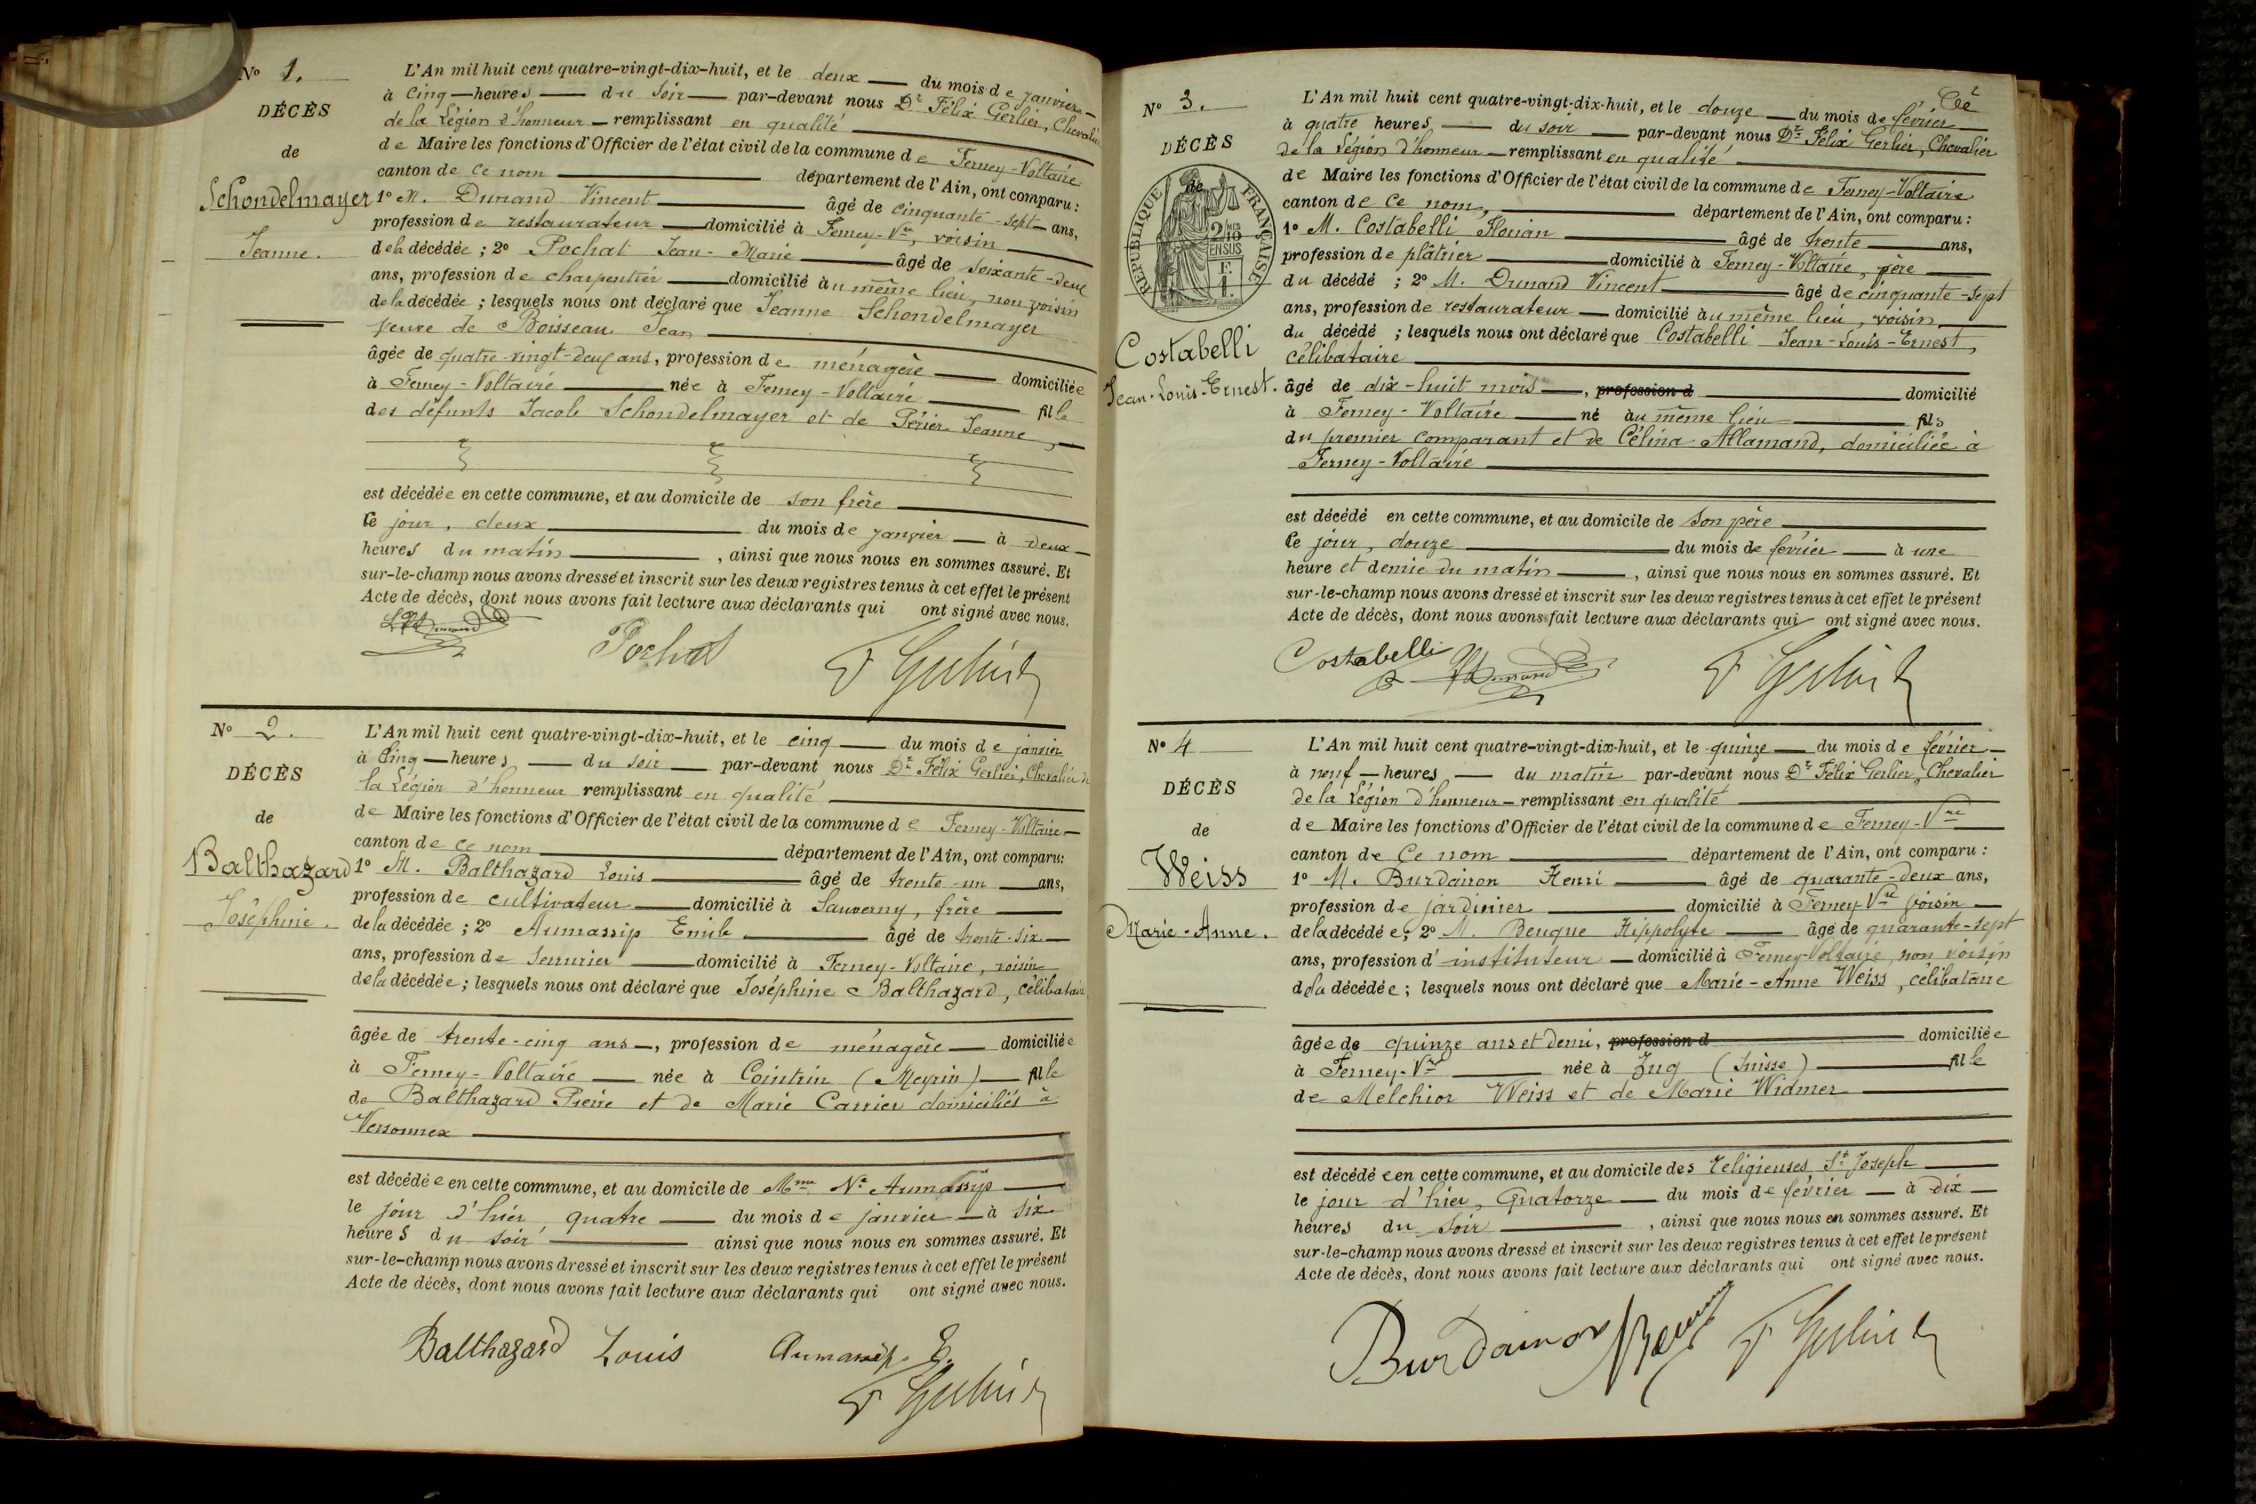 Nº 1.
DÉCÈS
de
Schondelmayer
Jeanne.
L'An mil huit cent quatre-vingt-dix-huit, et le deux du mois de janvier
à cinq heures du soir par-devant nous Dr Félix Gerlier, Chevalier
de la Légion d'honneur remplissant en qualité
de Maire les fonctions d'Officier de l'état civil de la commune de Ferney-Voltaire
canton de ce nom département de l'Ain, ont comparu :
1º M. Dunand Vincent âgé de cinquante-sept ans,
profession de restaurateur domicilié à Ferney-Vre, voisin
de la décédée ; 2º Pochat Jean-Marie âgé de soixante-deux
ans, profession de charpentier domicilié au même lieu, non voisin
de la décédée ; lesquels nous ont déclaré que Jeanne Schondelmayer
veuve de Boisseau Jean
âgée de quatre-vingt-deux ans, profession de ménagère domiciliée
à Ferney-Voltaire née à Ferney-Voltaire fille
des défunts Jacob Schondelmayer et de Périer Jeanne,
est décédée en cette commune, et au domicile de son frère
le jour, deux du mois de janvier à deux
heures du matin , ainsi que nous nous en sommes assuré. Et
sur-le-champ nous avons dressé et inscrit sur les deux registres tenus à cet effet le présent
Acte de décès, dont nous avons fait lecture aux déclarants qui ont signé avec nous.
Dunand Pochat F Gerlier
Nº 2.
DÉCÈS
de
Balthazard
Joséphine.
L'An mil huit cent quatre-vingt-dix-huit, et le cinq du mois de janvier
à cinq heures du soir par-devant nous Dr Félix Gerlier, Chevalier de
la Légion d'honneur remplissant en qualité
de Maire les fonctions d'Officier de l'état civil de la commune de Ferney-Voltaire
canton de ce nom département de l'Ain, ont comparu:
1º M. Balthazard Louis âgé de trente-un ans,
profession de cultivateur domicilié à Sauverny, frère
de la décédée ; 2º Aumassip Emile âgé de trente-six
ans, profession de serrurier domicilié à Ferney-Voltaire, voisin
de la décédée ; lesquels nous ont déclaré que Joséphine Balthazard, célibataire
âgée de trente-cinq ans, profession de ménagère domiciliée
à Ferney-Voltaire née à Cointrin (Meyrin) fille
de Balthazard Pierre et de Marie Carrier domiciliés à
Versonnex
est décédée en cette commune, et au domicile de Mme Ve Aumassip
le jour d'hier quatre du mois de janvier à six
heures du soir ainsi que nous nous en sommes assuré. Et
sur-le-champ nous avons dressé et inscrit sur les deux registres tenus à cet effet le présent
Acte de décès, dont nous avons fait lecture aux déclarants qui ont signé avec nous.
Balthazard Louis Aumassip E.
F Gerlier
Nº 3.
DÉCÈS
de
RÉPUBLIQUE FRANÇAISE
2/10 EN SUS
Costabelli
Jean-Louis-Ernest.
L'An mil huit cent quatre-vingt-dix-huit, et le douze du mois de février
à quatre heures du soir par-devant nous Dr Félix Gerlier, Chevalier
de la Légion d'honneur remplissant en qualité
de Maire les fonctions d'Officier de l'état civil de la commune de Ferney-Voltaire
canton de ce nom, département de l'Ain, ont comparu :
1º M. Costabelli Florian âgé de trente ans,
profession de plâtrier domicilié à Ferney-Voltaire, père
du décédé ; 2º M. Dunand Vincent âgé de cinquante-sept
ans, profession de restaurateur domicilié au même lieu, voisin
du décédé ; lesquels nous ont déclaré que Costabelli Jean-Louis-Ernest,
célibataire
âgé de dix-huit mois, profession d domicilié
à Ferney-Voltaire né au même lieu fils
du premier comparant et de Célina Allamand, domiciliée à
Ferney-Voltaire
est décédé en cette commune, et au domicile de son père
le jour, douze du mois de février à une
heure et demie du matin , ainsi que nous nous en sommes assuré. Et
sur-le-champ nous avons dressé et inscrit sur les deux registres tenus à cet effet le présent
Acte de décès, dont nous avons fait lecture aux déclarants qui ont signé avec nous.
Costabelli Dunand F Gerlier
Nº 4
DÉCÈS
de
Weiss
Marie-Anne.
L'An mil huit cent quatre-vingt-dix-huit, et le quinze du mois de février
à neuf heures du matin par-devant nous Dr Félix Gerlier, Chevalier
de la Légion d'honneur remplissant en qualité
de Maire les fonctions d'Officier de l'état civil de la commune de Ferney-Vre
canton de ce nom département de l'Ain, ont comparu :
1º M. Burdairon Henri âgé de quarante-deux ans,
profession de jardinier domicilié à Ferney-Vre voisin
de la décédée ; 2º M. Beuque Hippolyte âgé de quarante-sept
ans, profession d'instituteur domicilié à Ferney-Voltaire, non voisin
de la décédée ; lesquels nous ont déclaré que Marie-Anne Weiss, célibataire
âgée de quinze ans et demi, profession d domiciliée
à Ferney-Vre née à Zug (Suisse) fille
de Melchior Weiss et de Marie Widmer
est décédée en cette commune, et au domicile des religieuses St Joseph
le jour d'hier, quatorze du mois de février à dix
heures du soir , ainsi que nous nous en sommes assuré. Et
sur-le-champ nous avons dressé et inscrit sur les deux registres tenus à cet effet le présent
Acte de décès, dont nous avons fait lecture aux déclarants qui ont signé avec nous.
Burdairon Beuque F Gerlier